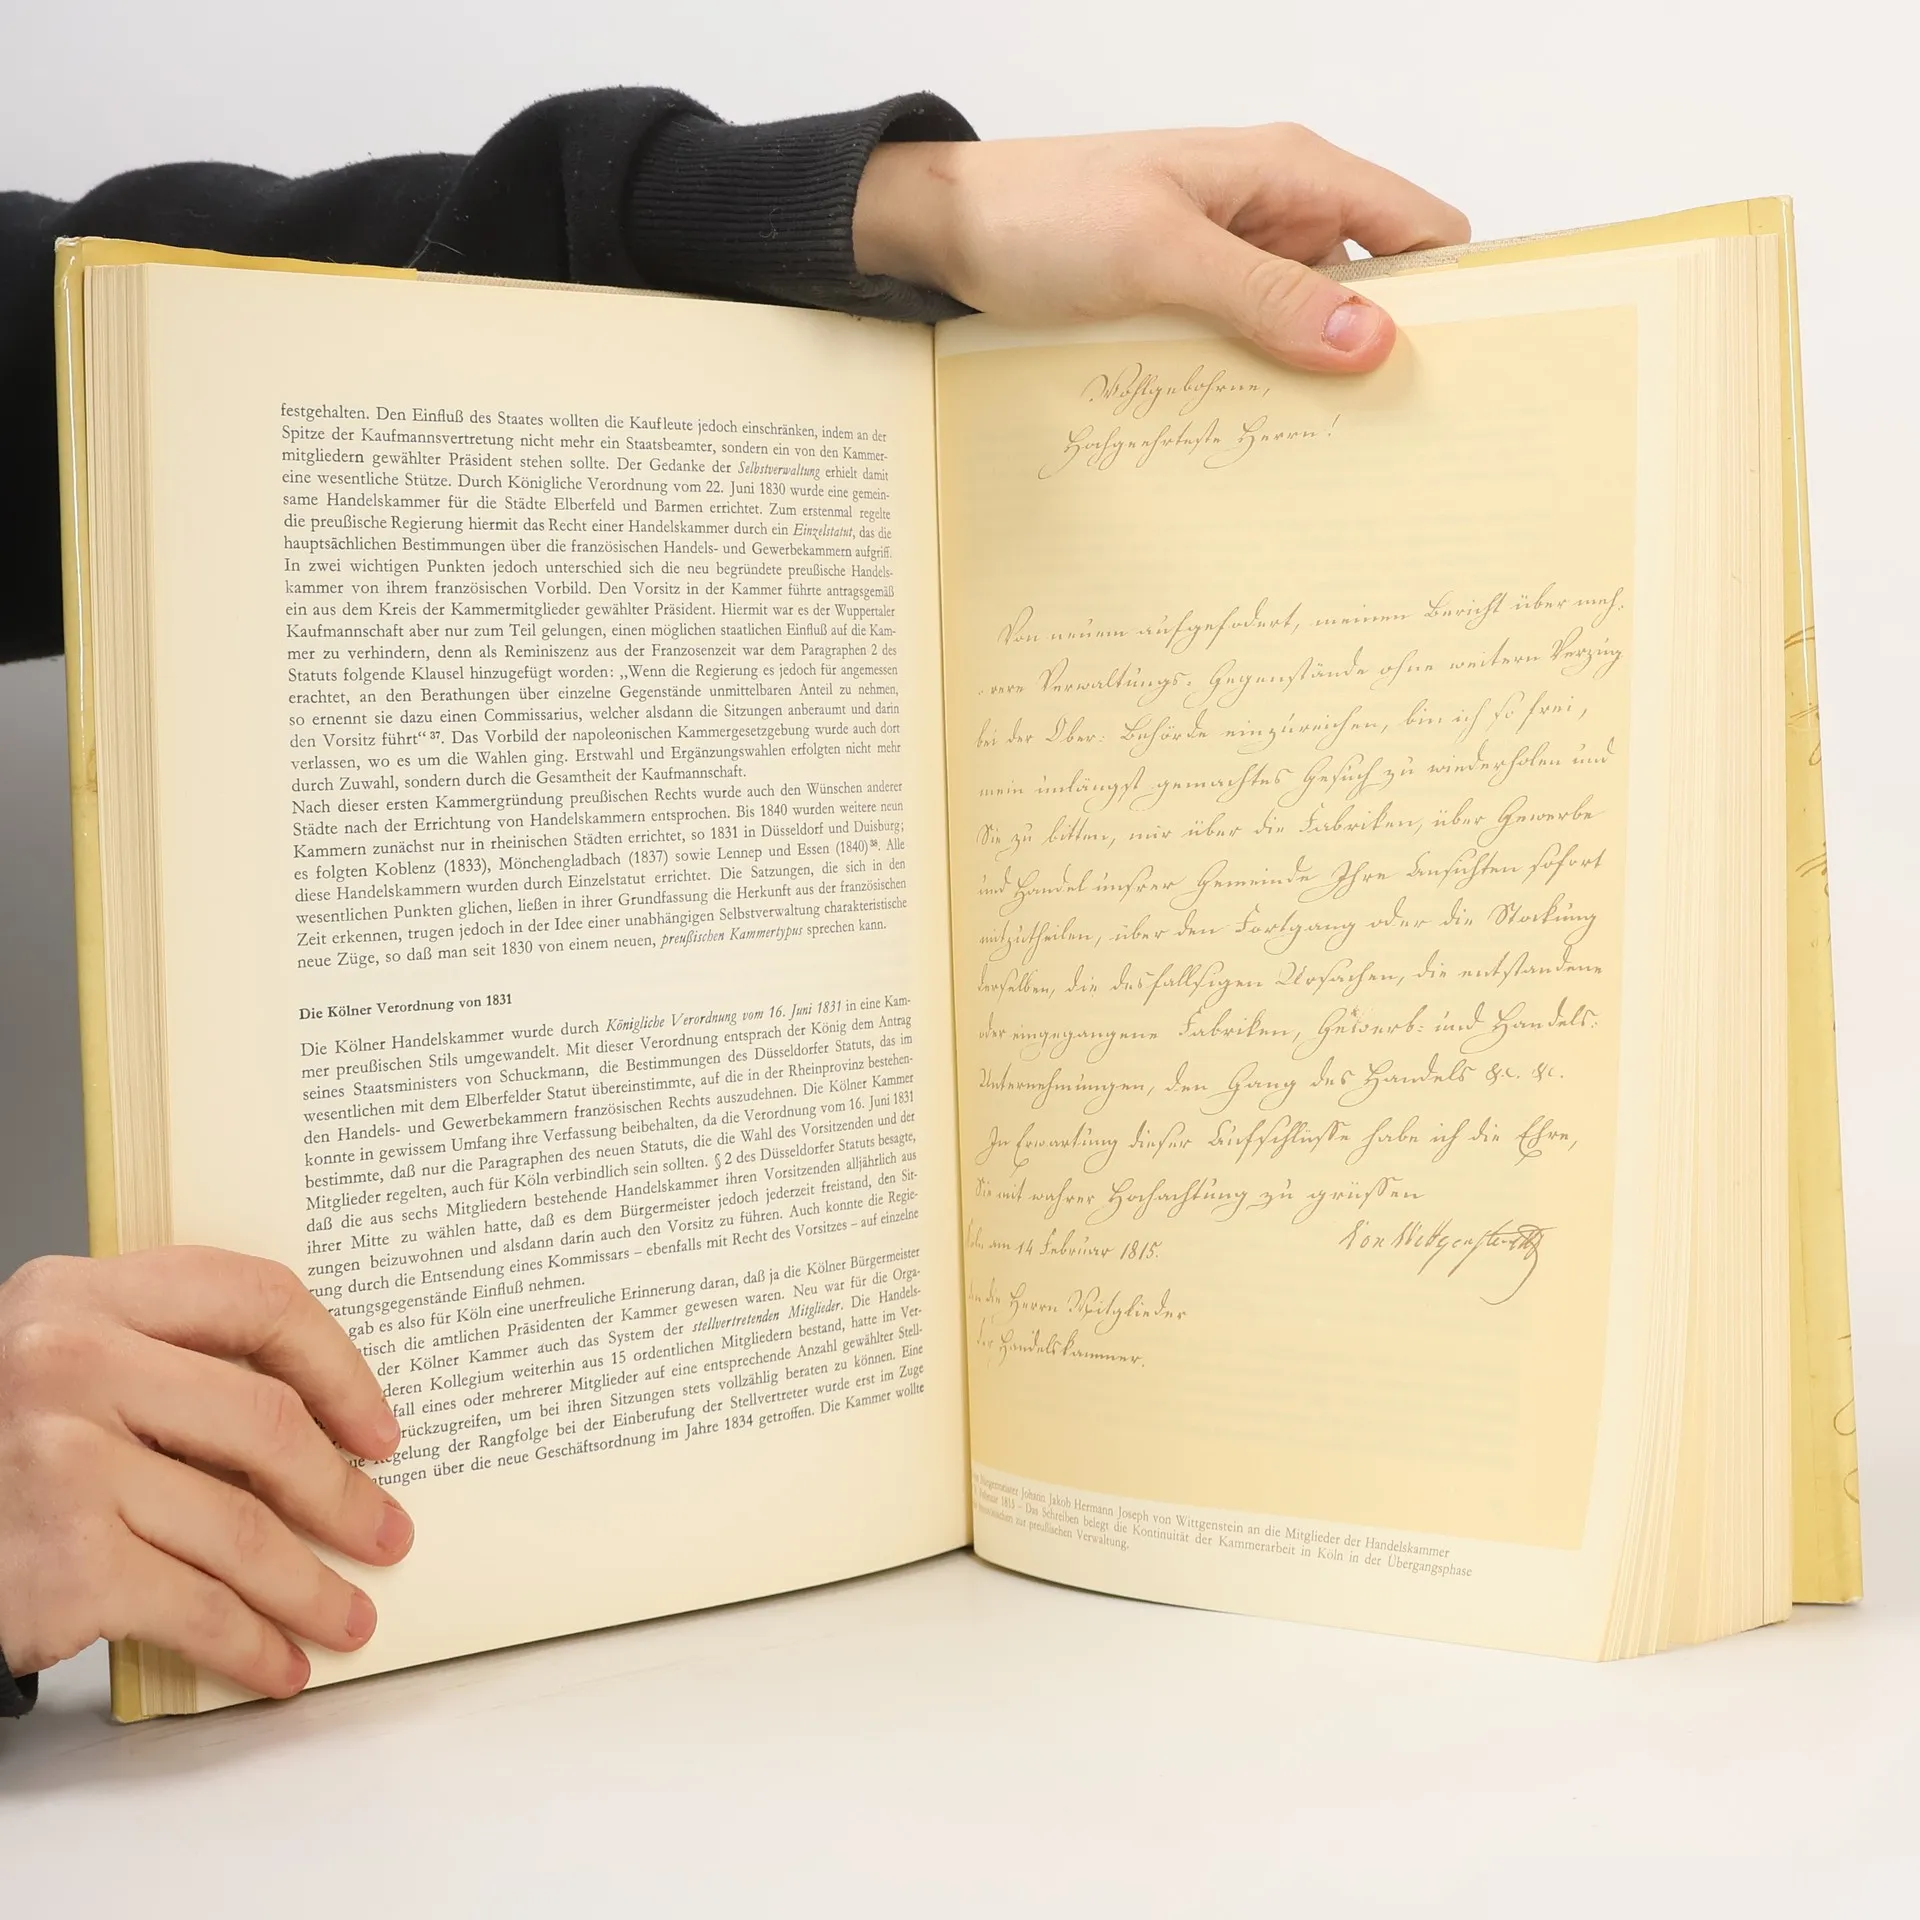 festgehalten. Den Einfluß des Staates wollten die Kaufleute jedoch einschränken, indem an der
Spitze der Kaufmannsvertretung nicht mehr ein Staatsbeamter, sondern ein von den Kammer-
mitgliedern gewählter Präsident stehen sollte. Der Gedanke der Selbstverwaltung erhielt damit
eine wesentliche Stütze. Durch Königliche Verordnung vom 22. Juni 1830 wurde eine gemein-
same Handelskammer für die Städte Elberfeld und Barmen errichtet. Zum erstenmal regelte
die preußische Regierung hiermit das Recht einer Handelskammer durch ein Einzelstatut, das die
hauptsächlichen Bestimmungen über die französischen Handels- und Gewerbekammern aufgriff.
In zwei wichtigen Punkten jedoch unterschied sich die neu begründete preußische Handels-
kammer von ihrem französischen Vorbild. Den Vorsitz in der Kammer führte antragsgemäß
ein aus dem Kreis der Kammermitglieder gewählter Präsident. Hiermit war es der Wuppertaler
Kaufmannschaft aber nur zum Teil gelungen, einen möglichen staatlichen Einfluß auf die Kam-
mer zu verhindern, denn als Reminiszenz aus der Franzosenzeit war dem Paragraphen 2 des
Statuts folgende Klausel hinzugefügt worden: „Wenn die Regierung es jedoch für angemessen
erachtet, an den Berathungen über einzelne Gegenstände unmittelbaren Anteil zu nehmen,
so ernennt sie dazu einen Commissarius, welcher alsdann die Sitzungen anberaumt und darin
den Vorsitz führt“ 37. Das Vorbild der napoleonischen Kammergesetzgebung wurde auch dort
verlassen, wo es um die Wahlen ging. Erstwahl und Ergänzungswahlen erfolgten nicht mehr
durch Zuwahl, sondern durch die Gesamtheit der Kaufmannschaft.
Nach dieser ersten Kammergründung preußischen Rechts wurde auch den Wünschen anderer
Städte nach der Errichtung von Handelskammern entsprochen. Bis 1840 wurden weitere neun
Kammern zunächst nur in rheinischen Städten errichtet, so 1831 in Düsseldorf und Duisburg;
es folgten Koblenz (1833), Mönchengladbach (1837) sowie Lennep und Essen (1840)38. Alle
diese Handelskammern wurden durch Einzelstatut errichtet. Die Satzungen, die sich in den
wesentlichen Punkten glichen, ließen in ihrer Grundfassung die Herkunft aus der französischen
Zeit erkennen, trugen jedoch in der Idee einer unabhängigen Selbstverwaltung charakteristische
neue Züge, so daß man seit 1830 von einem neuen, preußischen Kammertypus sprechen kann.
Die Kölner Verordnung von 1831
Die Kölner Handelskammer wurde durch Königliche Verordnung vom 16. Juni 1831 in eine Kam-
mer preußischen Stils umgewandelt. Mit dieser Verordnung entsprach der König dem Antrag
seines Staatsministers von Schuckmann, die Bestimmungen des Düsseldorfer Statuts, das im
wesentlichen mit dem Elberfelder Statut übereinstimmte, auf die in der Rheinprovinz bestehen-
den Handels- und Gewerbekammern französischen Rechts auszudehnen. Die Kölner Kammer
konnte in gewissem Umfang ihre Verfassung beibehalten, da die Verordnung vom 16. Juni 1831
bestimmte, daß nur die Paragraphen des neuen Statuts, die die Wahl des Vorsitzenden und der
Mitglieder regelten, auch für Köln verbindlich sein sollten. § 2 des Düsseldorfer Statuts besagte,
daß die aus sechs Mitgliedern bestehende Handelskammer ihren Vorsitzenden alljährlich aus
ihrer Mitte zu wählen hatte, daß es dem Bürgermeister jedoch jederzeit freistand, den Sit-
zungen beizuwohnen und alsdann darin auch den Vorsitz zu führen. Auch konnte die Regie-
rung durch die Entsendung eines Kommissars – ebenfalls mit Recht des Vorsitzes – auf einzelne
ratungsgegenstände Einfluß nehmen.
gab es also für Köln eine unerfreuliche Erinnerung daran, daß ja die Kölner Bürgermeister
atisch die amtlichen Präsidenten der Kammer gewesen waren. Neu war für die Orga-
der Kölner Kammer auch das System der stellvertretenden Mitglieder. Die Handels-
deren Kollegium weiterhin aus 15 ordentlichen Mitgliedern bestand, hatte im Ver-
fall eines oder mehrerer Mitglieder auf eine entsprechende Anzahl gewählter Stell-
rückzugreifen, um bei ihren Sitzungen stets vollzählig beraten zu können. Eine
ue Regelung der Rangfolge bei der Einberufung der Stellvertreter wurde erst im Zuge
atungen über die neue Geschäftsordnung im Jahre 1834 getroffen. Die Kammer wollte
Wohlgebohrne,
Hochgeehrteste Herrn!
Von neuem aufgefodert, meinen Bericht über meh-
rere Verwaltungs: Gegenstände ohne weitern Verzug
bei der Ober: Behörde einzureichen, bin ich so frei,
mein unlängst gemachtes Gesuch zu wiederholen und
Sie zu bitten, mir über die Fabriken, über Gewerbe
und Handel unsrer Gemeinde Ihre Ansichten sofort
mitzutheilen, über den Fortgang oder die Stockung
derselben, die desfallsigen Ursachen, die entstandene
oder eingegangene Fabriken, Gewerb: und Handels:
Unternehmungen, den Gang des Handels &c. &c.
In Erwartung dieser Aufschlüsse habe ich die Ehre,
Sie mit wahrer Hochachtung zu grüssen
am 14 Februar 1815.
Von Wittgenstein
die Herrn Mitglieder
der Handelskammer.
Bürgermeister Johann Jakob Hermann Joseph von Wittgenstein an die Mitglieder der Handelskammer
Februar 1815 – Das Schreiben belegt die Kontinuität der Kammerarbeit in Köln in der Übergangsphase
zur preußischen Verwaltung.